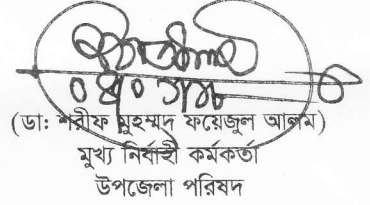 (ডা: শরীফ মুহম্মদ ফয়েজুল আলম)
মুখ্য নির্বাহী কর্মকর্তা
উপজেলা পরিষদ